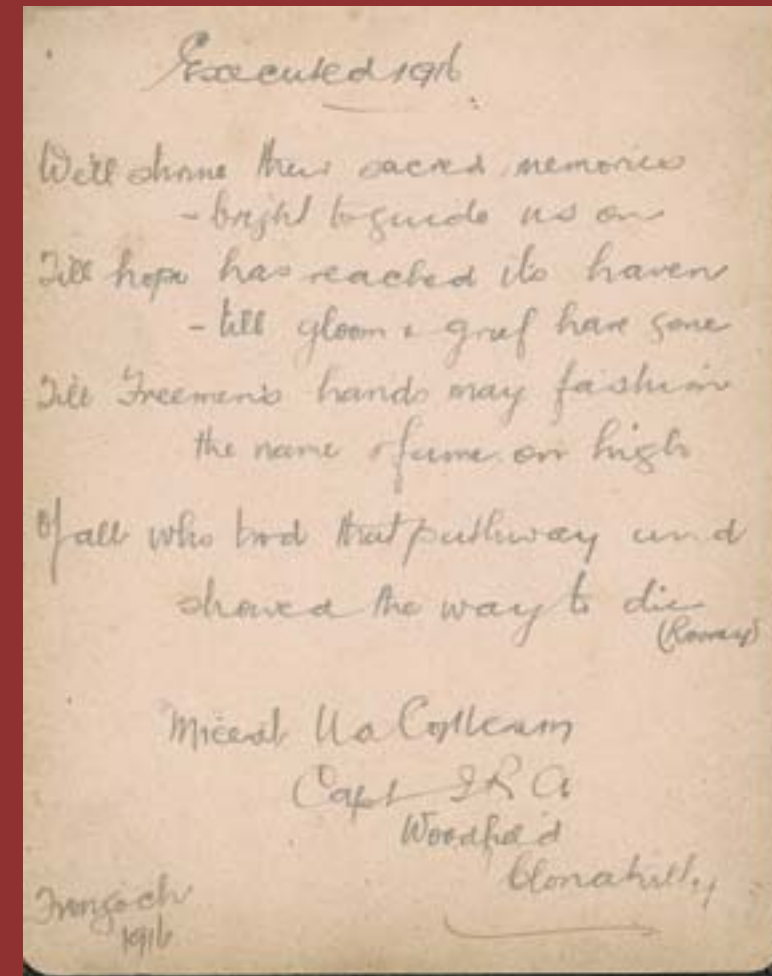 Executed 1916
We'll shrine their sacred memories
- bright to guide us on
Till hope has reached its haven
- till gloom & grief have gone
Till Freemen's hands may fashion
the name & fame on high
Of all who trod that pathway and
showed the way to die
(Rooney)
Miceál Ua Coileain
Capt I R A
Woodfield
Clonakilty
Frongoch
1916